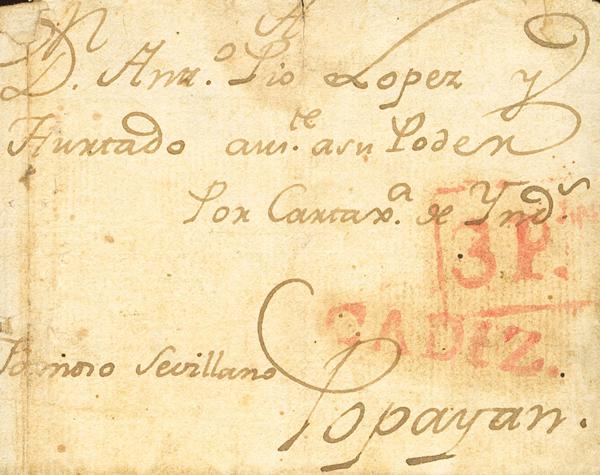 A
D. Ant.o Pio Lopez y
Hurtado aus.te a su Poder
Por Cartax.a de Ynd.s
3 P.
CADIZ.
Sevillano
Popayan.